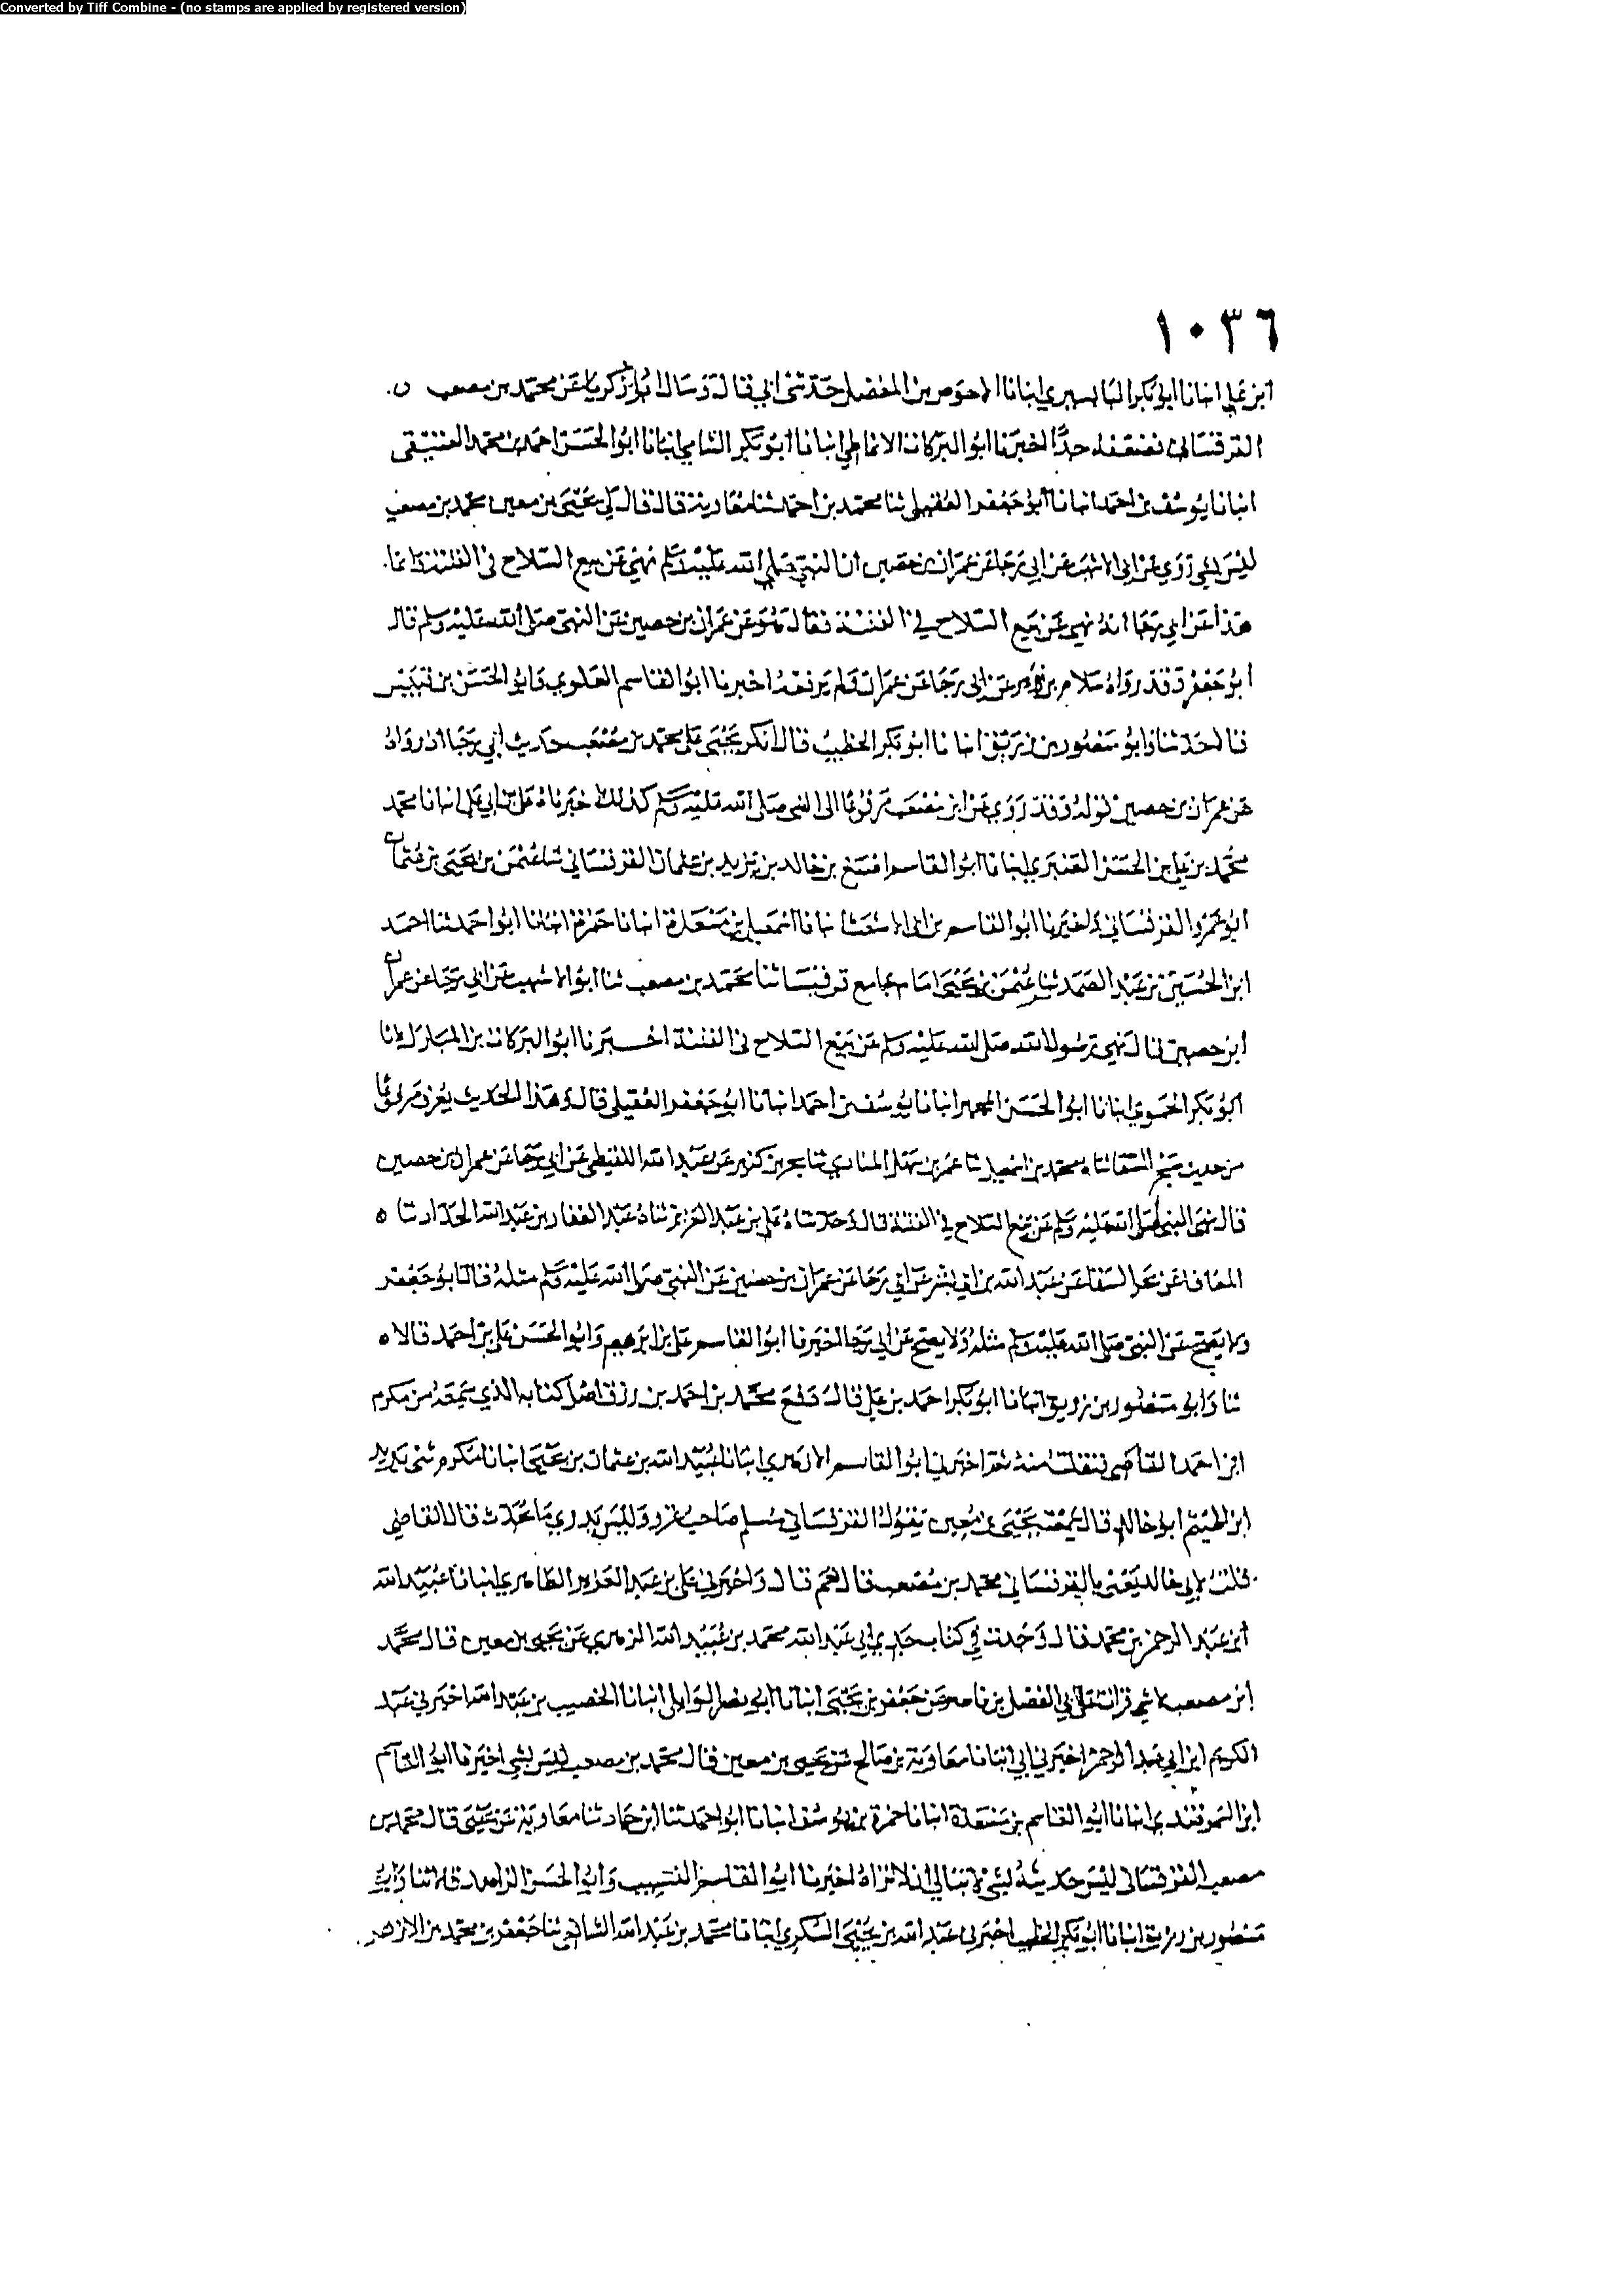 Converted by Tiff Combine - (no stamps are applied by registered version)
١٠٣٦
ابن علي انبانا ابو بكر البابسيري انبانا الاحوص بن المفضل حدثني ابي قال وسالت ابا زكريا عن محمد بن مصعب
القرقساني فضعفه جدا اخبرنا ابو البركات الانماطي انبانا ابو بكر الشامي انبانا ابو الحسن احمد بن محمد العتيقي
انبانا يوسف بن احمد انبانا ابو جعفر العقيلي ثنا محمد بن احمد ثنا معاوية قال قال لي يحيى بن معين محمد بن مصعب
ليس بشي روى عن ابي الاشهب عن ابي رجا عن عمران بن حصين ان النبي صلى الله عليه وسلم نهى عن بيع السلاح في الفتنة انما
هذا عن ابي رجا انه نهى عن بيع السلاح في الفتنة فقال هو عن عمران بن حصين عن النبي صلى الله عليه وسلم قال
ابو جعفر وقد رواه سلام بن عن ابي رجا عن عمران ولم يرفعه اخبرنا ابو القاسم العلوي وابو الحسن بن قبيس
قالا حدثنا وابو منصور بن زريق انبانا ابو بكر الخطيب قال انكر يحيى على محمد بن مصعب حديث ابي رجا اذ رواه
عن عمران بن حصين قوله وقد روي عن ابن مصعب مرفوعا الى النبي صلى الله عليه وسلم كذلك اخبرناه علي بن ابي علي انبانا محمد
محمد بن علي بن الحسن العنبري انبانا ابو القاسم بن خالد بن يزيد بن عثمان القرقساني ثنا عثمن بن يحيى بن عثمان
ابو عمرو القرقساني اخبرنا ابو القاسم بن ابي الاشعث انبانا اسمعيل بن مسعدة انبانا حمزة انبانا ابو احمد ثنا احمد
ابن الحسين بن عبد الصمد ثنا عثمن بن يحيى امام جامع قرقيسا ثنا محمد بن مصعب ثنا ابو الاشهب عن ابي رجا عن عمران
ابن حصين قال نهى رسول الله صلى الله عليه وسلم عن بيع السلاح في الفتنة اخبرنا ابو البركات بن المبارك انا
ابو بكر الحموي انبانا ابو الحسن المجهز انبانا يوسف بن احمد انبانا ابو جعفر العقيلي قال وهذا الحديث يعرف مرفوعا
من حديث بحر السقا ثناه محمد بن اسمعيل ثنا عمر بن سهل المنادي ثنا بحر بن كنيز عن عبيد الله القيطي عن ابي رجا عن عمران بن حصين
قال نهى النبي صلى الله عليه وسلم عن بيع السلاح في الفتنة قال وحدثناه علي بن عبد العزيز ثناه عبد الغفار بن عبد الله الحداد ثنا
المعافا عن بحر السقا عن عبد الله بن ابي بشر عن ابي رجا عن عمران بن حصين عن النبي صلى الله عليه وسلم مثله قال ابو جعفر
ولا يصح عن النبي صلى الله عليه وسلم مثله ولا يصح عن ابي رجا اخبرنا ابو القاسم علي بن ابرهيم وابو الحسن علي بن احمد قالا
ثنا وابو منصور بن زريق انبانا ابو بكر احمد بن علي قال دفع محمد بن احمد بن رزق اصل كتابه الذي سمعه من مكرم
ابن احمد القاضي فنقلت منه ثم اخبرني ابو القاسم الازهري انبانا عبيد الله بن عثمان بن يحيى انبانا مكرم ثنى يزيد
ابن الهيثم ابو خالد قال سمعت يحيى بن معين يقول القرقساني مسلم صاحب غزو وليس يدري ما يحدث قال القاضي
قلت لابي خالد يعني بالقرقساني محمد بن مصعب قال نعم قال واخبرني علي بن عبد العزيز الطاهري انبانا عبيد الله
ابن عبد الرحمن بن محمد قال وجدت في كتاب جدي ابي عبد الله محمد بن عبيد الله الزهري عن يحيى بن معين قال محمد
ابن مصعب لا شي قرات على ابي الفضل بن ناصر عن جعفر بن يحيى انبانا ابو نصر الوايلي انبانا الخصيب بن عبد الله اخبرني عبد
الكريم ابن ابي عبد الرحمن اخبرني ابي انبانا معاوية بن صالح عن يحيى بن معين قال محمد بن مصعب ليس بشي اخبرنا ابو القاسم
ابن السمرقندي انبانا ابو القاسم بن مسعدة انبانا حمزة بن يوسف انبانا ابو احمد ثنا ابن حماد ثنا معاوية عن يحيى قال محمد بن
مصعب القرقساني ليس حديثه بشي لا تبالي ان لا تراه اخبرنا ابو القاسم النسيب وابو الحسن الزاهد قالا ثنا وابو
منصور بن زريق انبانا ابو بكر الخطيب اخبرني عبد الله بن يحيى السكري انبانا محمد بن عبد الله الشافعي ثنا جعفر بن محمد بن الازهر